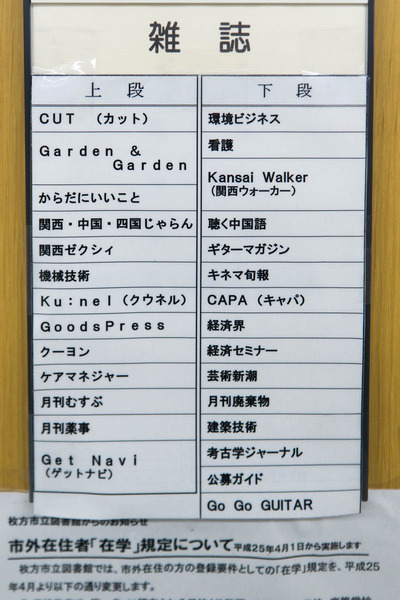 雑誌
上段
CUT （カット）
Garden &
Garden
からだにいいこと
関西・中国・四国じゃらん
関西ゼクシィ
機械技術
Ku：nel（クウネル）
GoodsPress
クーヨン
ケアマネジャー
月刊むすぶ
月刊薬事
Get Navi
（ゲットナビ）
下段
環境ビジネス
看護
Kansai Walker
（関西ウォーカー）
聴く中国語
ギターマガジン
キネマ旬報
CAPA（キャパ）
経済界
経済セミナー
芸術新潮
月刊廃棄物
建築技術
考古学ジャーナル
公募ガイド
Go Go GUITAR
枚方市立図書館からのお知らせ
市外在住者「在学」規定について 平成25年4月1日から実施します
枚方市立図書館では、市外在住の方の登録要件としての「在学」規定を、平成25
年4月より以下の通り変更します。